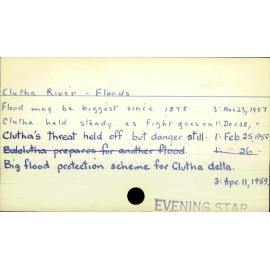 Clutha River - Floods
Flood may be biggest since 1878 3: Nov 23, 1957
Clutha held steady as fight goes on 1: Dec 28, "
Clutha's threat held off but danger still. 1: Feb. 25, 1958
Balclutha prepares for another flood. 1: " 26 "
Big flood protection scheme for Clutha delta.
3: Apr. 11, 1959
EVENING STAR